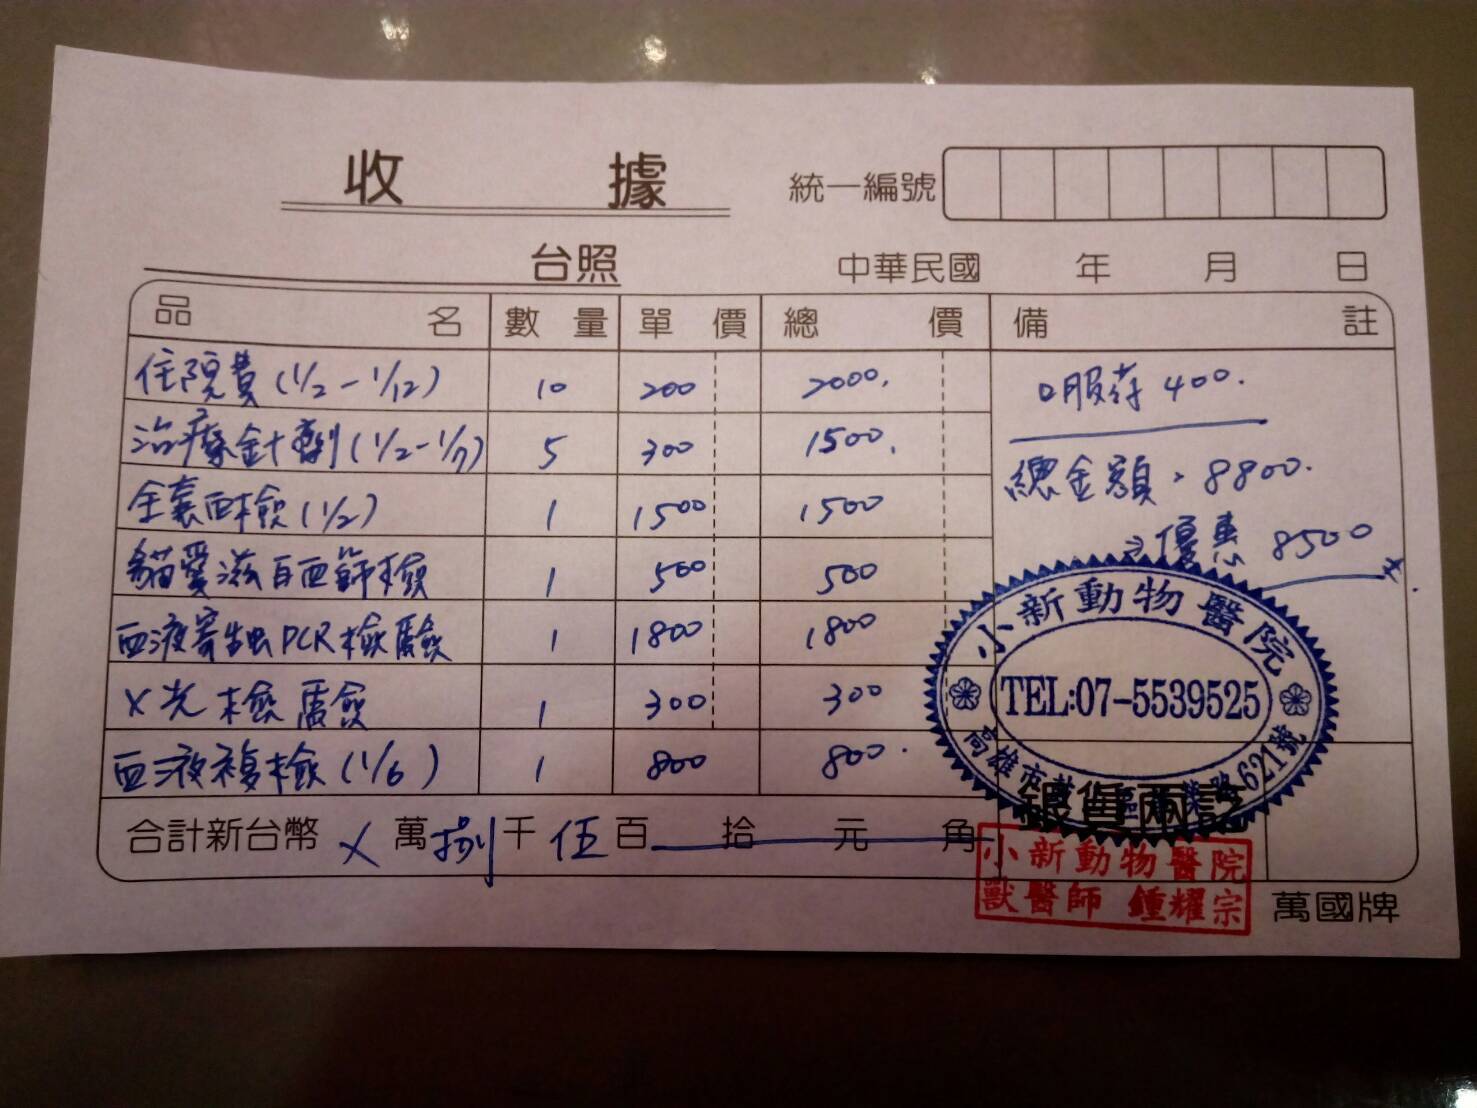 收據
統一編號
台照 中華民國 年 月 日
品名 數量 單價 總價 備註
住院費(1/2-1/12) 10 200 2000.
口服葯 400.
治療針劑(1/2-1/7) 5 300 1500.
總金額,8800.
全套血檢(1/2) 1 1500 1500
→優惠 8500
貓愛滋白血篩檢 1 500 500
血液寄生蟲PCR檢驗 1 1800 1800
X光檢驗 1 300 300
血液複檢(1/6) 1 800 800.
小新動物醫院
TEL:07-5539525
高雄市 621號
銀貨兩訖
合計新台幣 X 萬 捌 千 伍 百 拾 元 角
小新動物醫院
獸醫師 鍾耀宗
萬國牌